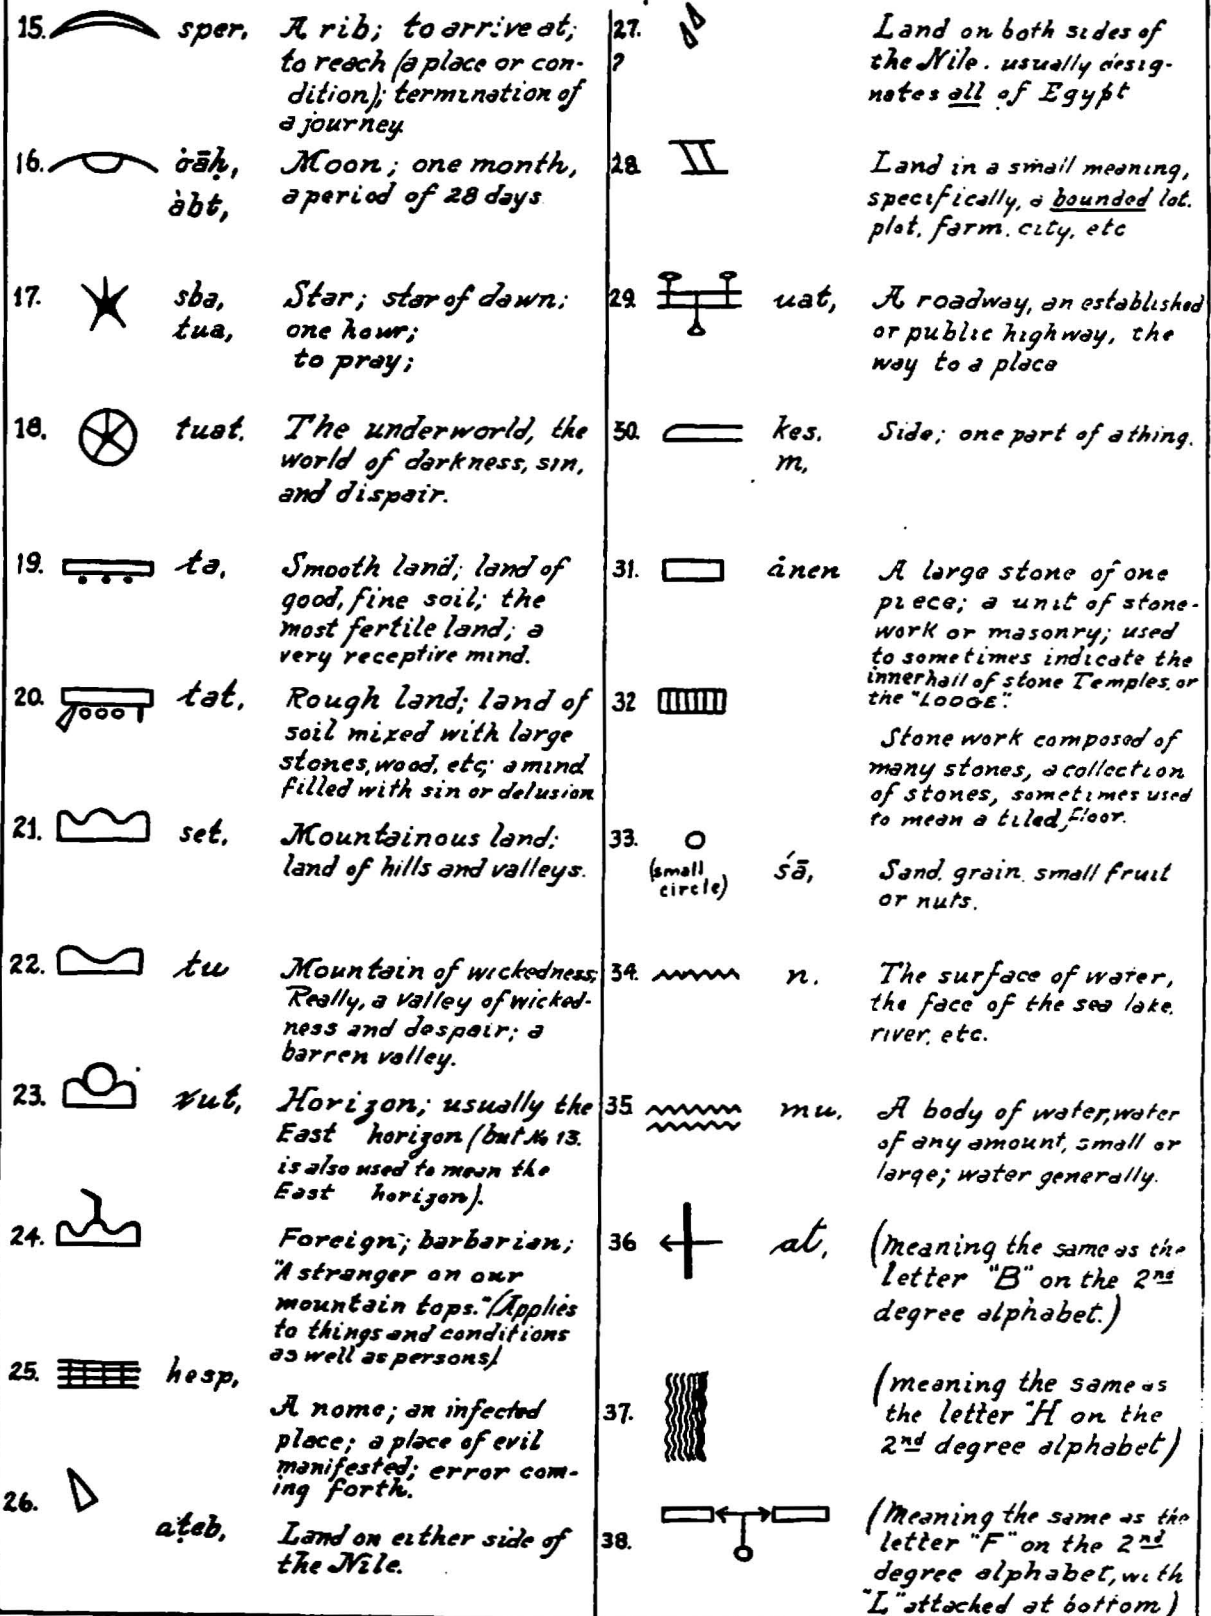 15. sper, A rib; to arrive at;
to reach (a place or con-
dition); termination of
a journey.
16. àāḥ, Moon; one month,
àbt, a period of 28 days
17. sba, Star; star of dawn;
tua, one hour;
to pray;
18. tuat. The underworld, the
world of darkness, sin,
and dispair.
19. ta, Smooth land; land of
good, fine soil; the
most fertile land; a
very receptive mind.
20. tat, Rough land; land of
soil mixed with large
stones, wood, etc; a mind
filled with sin or delusion
21. set, Mountainous land;
land of hills and valleys.
22. tu Mountain of wickedness;
Really, a valley of wicked-
ness and despair; a
barren valley.
23. xut, Horizon; usually the
East horizon (but No 13.
is also used to mean the
East horizon).
24. Foreign; barbarian;
"A stranger on our
mountain tops." (Applies
to things and conditions
as well as persons)
25. hesp,
A nome; an infected
place; a place of evil
manifested; error com-
ing forth.
26.
aṭeb, Land on either side of
the Nile.
27. Land on both sides of
? the Nile. usually desig-
nates all of Egypt
28. Land in a small meaning,
specifically, a bounded lot.
plot, farm, city, etc
29. uat, A roadway, an established
or public highway, the
way to a place
30. kes. Side; one part of a thing.
m,
31. ånen A large stone of one
piece; a unit of stone-
work or masonry; used
to sometimes indicate the
inner hall of stone Temples, or
32 the "LODGE".
Stone work composed of
many stones, a collection
of stones, sometimes used
to mean a tiled floor.
33.
(small śā, Sand, grain, small fruit
circle) or nuts.
34. n. The surface of water,
the face of the sea lake,
river, etc.
35. mu. A body of water, water
of any amount, small or
large; water generally.
36 at, (meaning the same as the
letter "B" on the 2nd
degree alphabet.)
(meaning the same as
37. the letter "H on the
2nd degree alphabet)
(Meaning the same as the
38. letter "F" on the 2nd
degree alphabet, with
"L" attached at bottom)